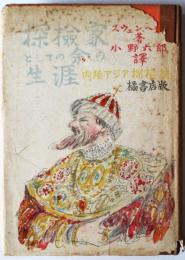 探検家
としての余の
生涯
スウェン・ヘ
著
小野六郎
譯
内陸アジア
橘書店版